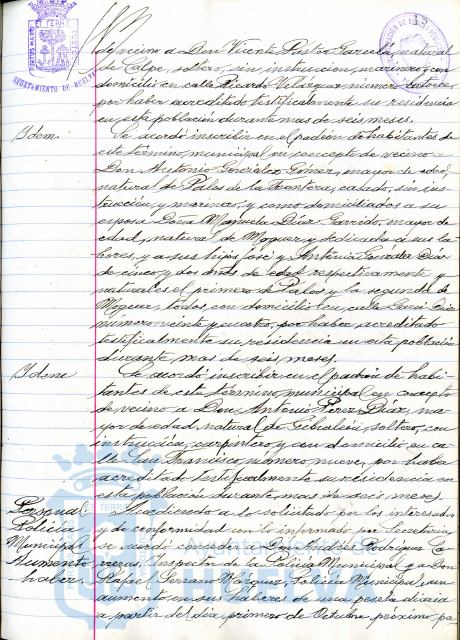 de vecino a Don Vicente Pastor García, natural
de Calpe, soltero, sin instrucción, marinero y con
domicilio en calle Ricardo Velázquez número catorce,
por haber acreditado testificalmente su residencia
en esta población durante mas de seis meses.
Idem
Se acordó inscribir en el padrón de habitantes de
este término municipal en concepto de vecino a
Don Antonio González Gómez, mayor de edad,
natural de Palos de la Frontera, casado, sin ins
trucción y marinero, y como domiciliados a su
esposa Doña Manuela Díaz Garrido, mayor de
edad, natural de Moguer y dedicada a sus la
bores, y a sus hijos José y Antonia González Díaz
de cinco y dos años de edad respectivamente y
naturales el primero de Palos y la segunda de
Moguer, todos con domicilio en calle
número veinte y cuatro, por haber acreditado
testificalmente su residencia en esta población
durante mas de seis meses.
Idem
Se acordó inscribir en el padrón de habi-
tantes de este término municipal en concepto
de vecino a Don Antonio Pérez Díaz, ma
yor de edad, natural de Gibraleón, soltero, con
instrucción, carpintero y con domicilio en ca
lle San Francisco número nueve, por haber
acreditado testificalmente su residencia en
esta población durante mas de seis meses
Personal
Policía
Municipal
Aumento
haber.
Accediendo a lo solicitado por los interesados
y de conformidad con lo informado por Secretaría
se acordó conceder a Don Andrés Rodríguez Ca
rreras, Inspector de la Policía Municipal y a Don
Rafael Serrano Vázquez, Policía Municipal, un
aumento en sus haberes de una peseta diaria
a partir del día primero de Octubre próximo pa
AYUNTAMIENTO DE HUELVA
Ayuntamiento de